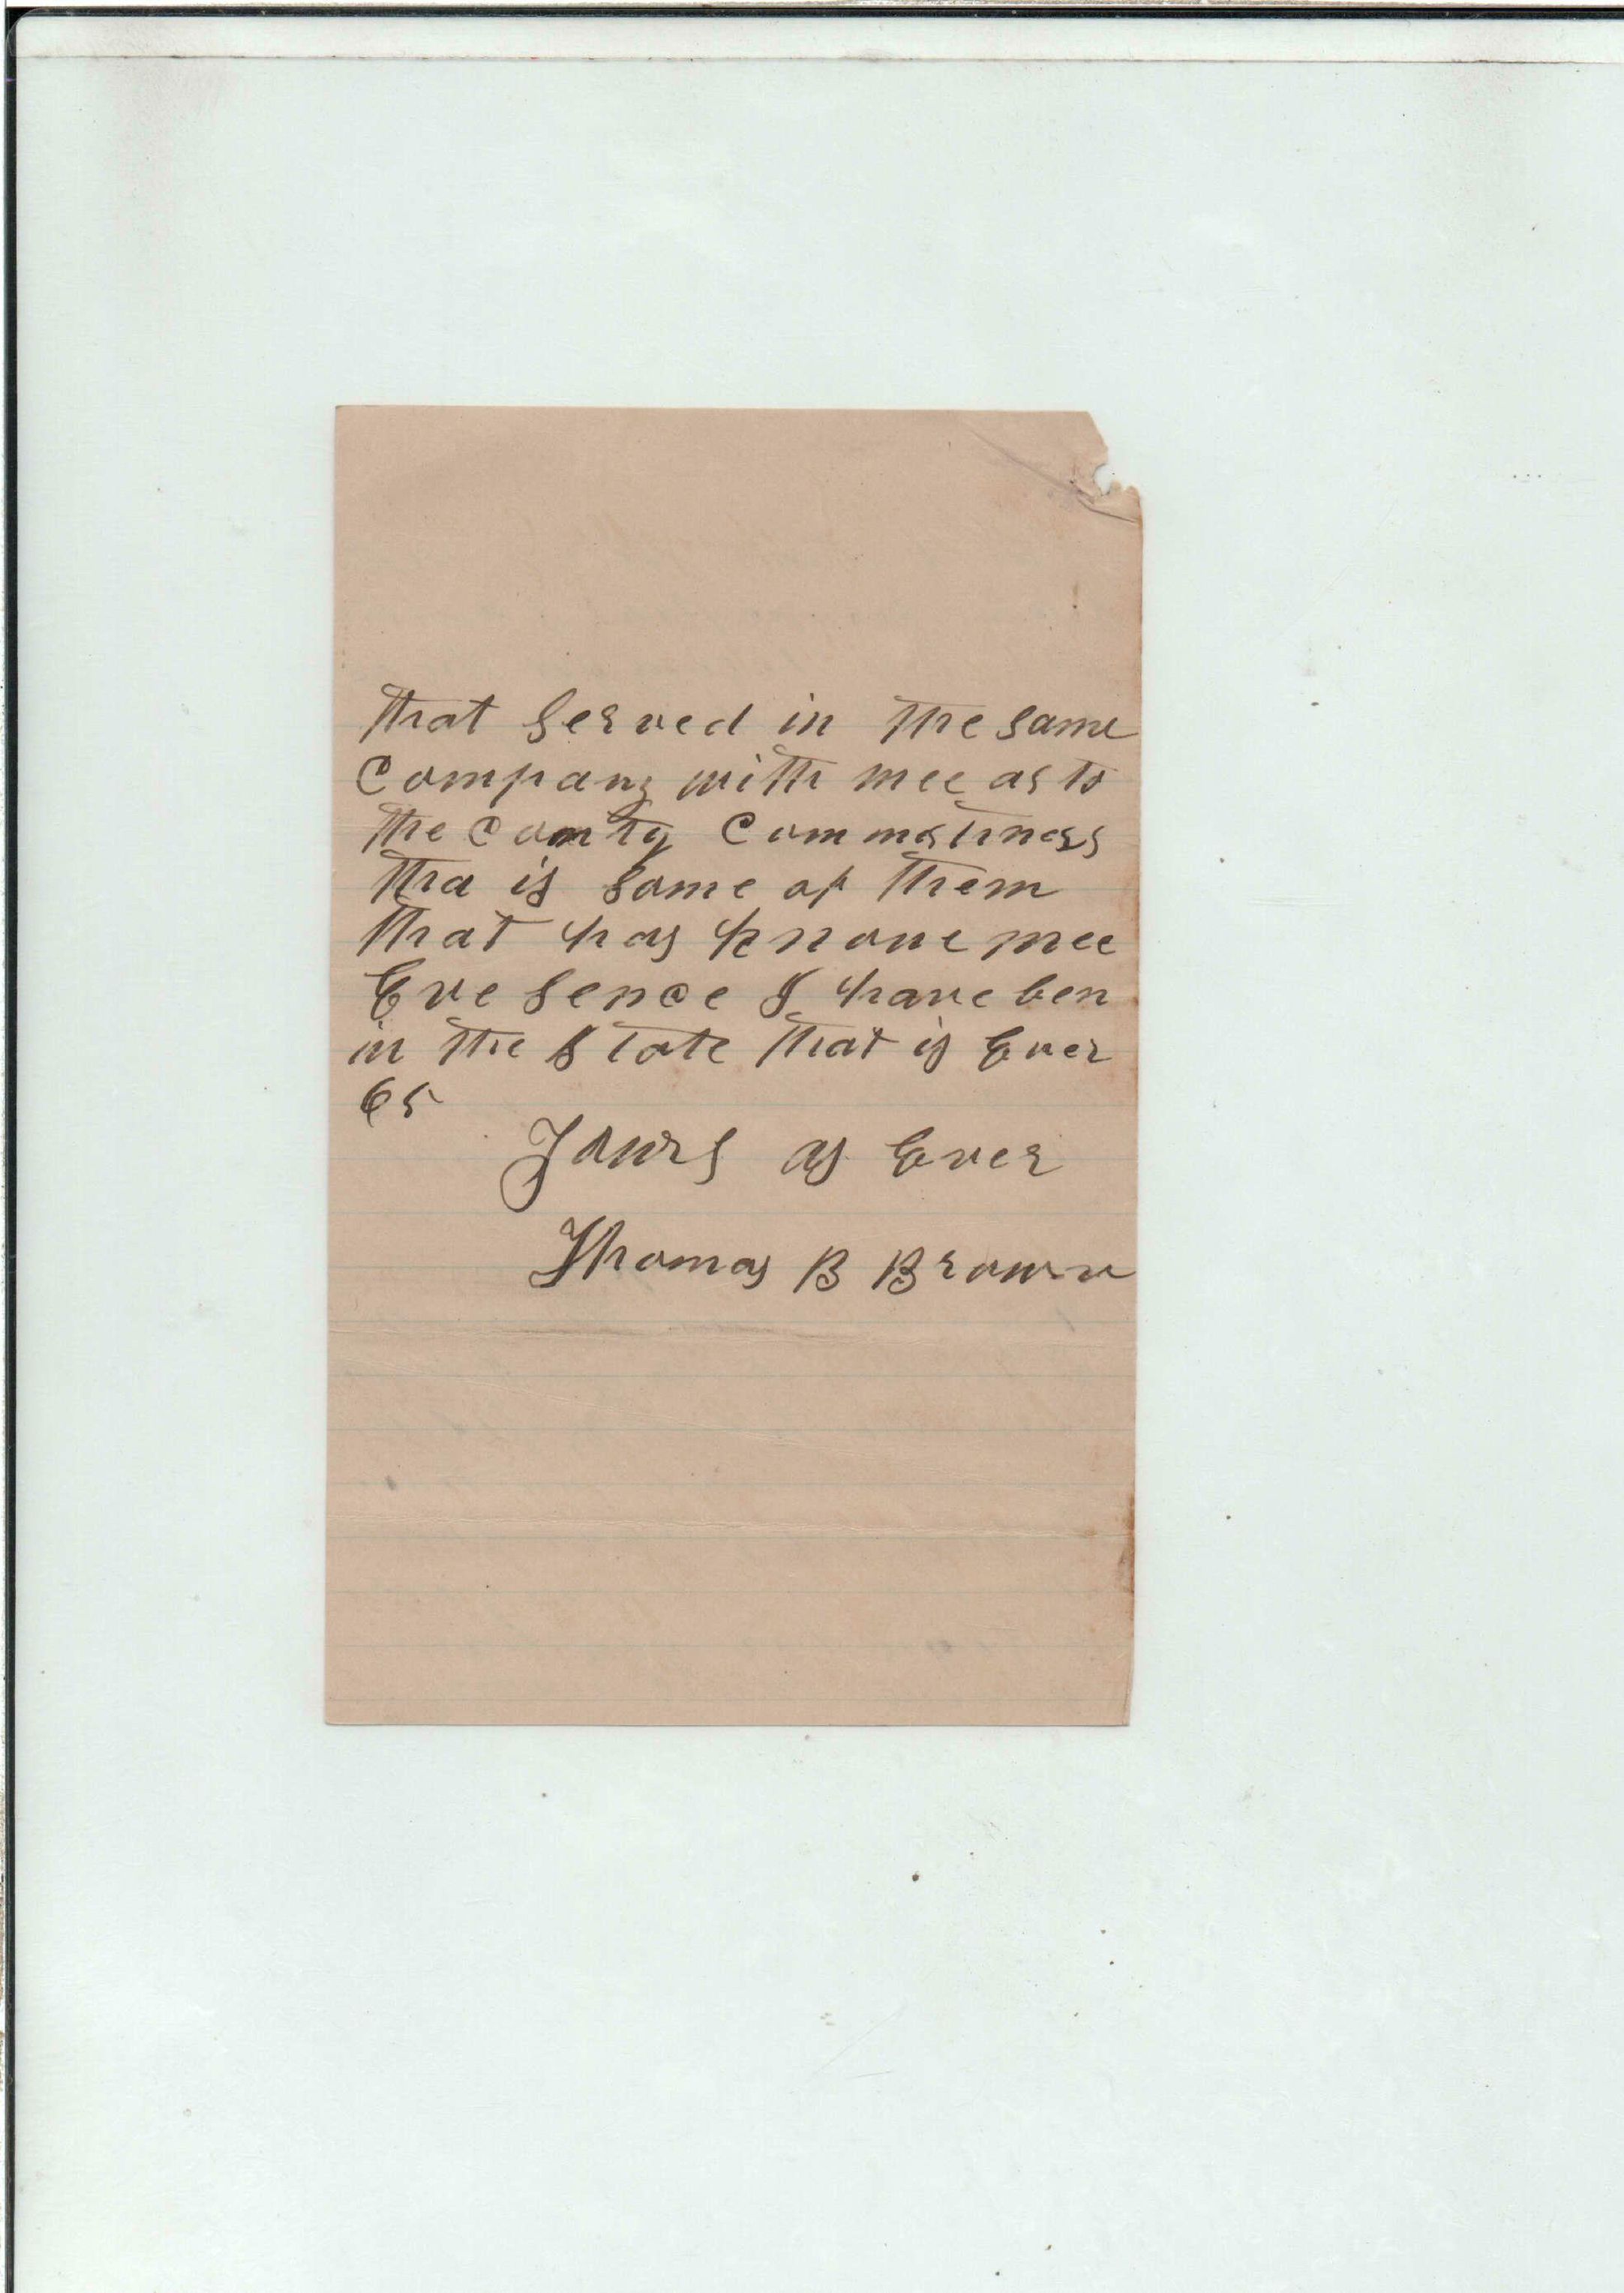 that served in the same
Company with mee as to
the County
tha is some of them
that has knone mee
Eve sence I have ben
in the State that is Ever
65
Yours as Ever
Thomas B Brown